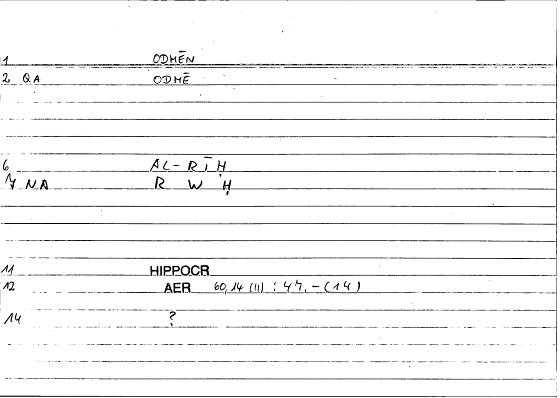 1 ODMĒN
2 QA ODMĒ
6 AL-RĪḤ
7 NA R W Ḥ
11 HIPPOCR
12 AER 60,14 (11) : 47.-(14)
14 ?